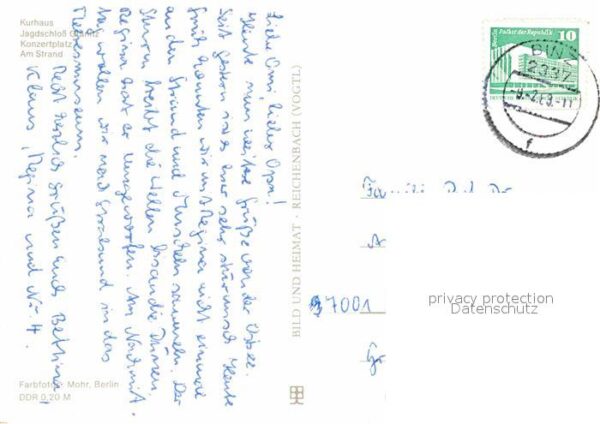 Kurhaus
Jagdschloß Granitz
Konzertplatz
Am Strand
Liebe Omi, lieber Opa!
Heute nun weitere Grüße von der Ostsee.
Seit gestern ist es hier sehr stürmisch. Heute
früh konnten wir mit Regina nicht einmal
an den Strand und Muscheln sammeln. Der
Sturm treibt die Wellen bis an die Dünen.
Regina hat er umgeworfen. Am Nachmit-
tag wollen wir nach Stralsund in das
Meeresmuseum.
Recht herzlich grüßen euch Bettina,
Klaus, Regina und
BILD UND HEIMAT · REICHENBACH (VOGTL)
Farbfoto: Mohr, Berlin
DDR 0,20 M
Berlin Palast der Republik
10
DDR
BINZ
2337
Familie
privacy protection
Datenschutz